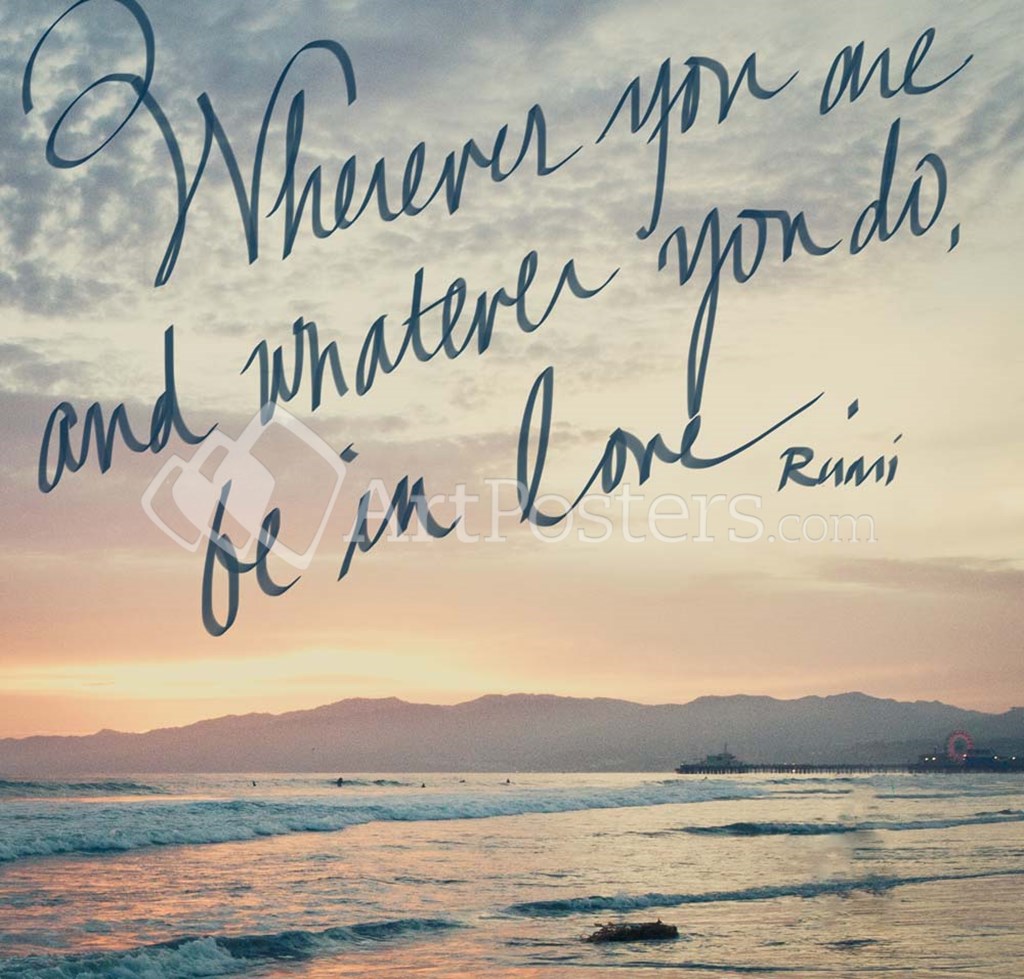 Wherever you are
and whatever you do,
be in love
Rumi
ArtPosters.com